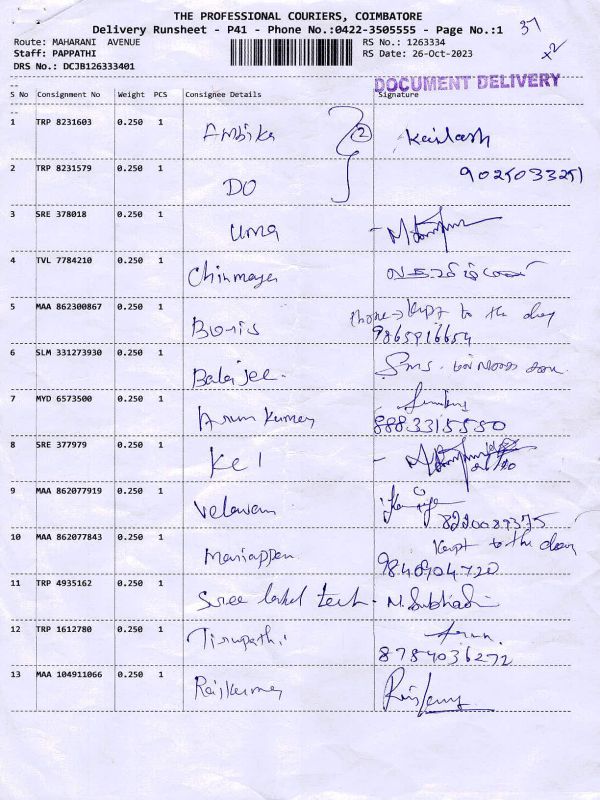 THE PROFESSIONAL COURIERS, COIMBATORE
Delivery Runsheet - P41 - Phone No.:0422-3505555 - Page No.:1
37
x2
Route: MAHARANI AVENUE
RS No.: 1263334
Staff: PAPPATHI
RS Date: 26-Oct-2023
DRS No.: DCJB126333401
DOCUMENT DELIVERY
S No Consignment No Weight PCS Consignee Details Signature
1 TRP 8231603 0.250 1 Ambika 2 Kailash
2 TRP 8231579 0.250 1 DO 9025033251
3 SRE 378018 0.250 1 Uma
4 TVL 7784210 0.250 1 Chinmaya
5 MAA 862300867 0.250 1 Boris Phone → Kept to the
9865916654
6 SLM 331273930 0.250 1 Balajee.
7 MYD 6573500 0.250 1 Arun Kumar
8883315550
8 SRE 377979 0.250 1 Kel
26/10
9 MAA 862077919 0.250 1 Velavan
8220087375
10 MAA 862077843 0.250 1 Mariappan Kept to the door
9840904720
11 TRP 4935162 0.250 1 Sree tech - N. Subhash
12 TRP 1612780 0.250 1 Tirupathi Arun.
8754036272
13 MAA 104911066 0.250 1 Rajkumar